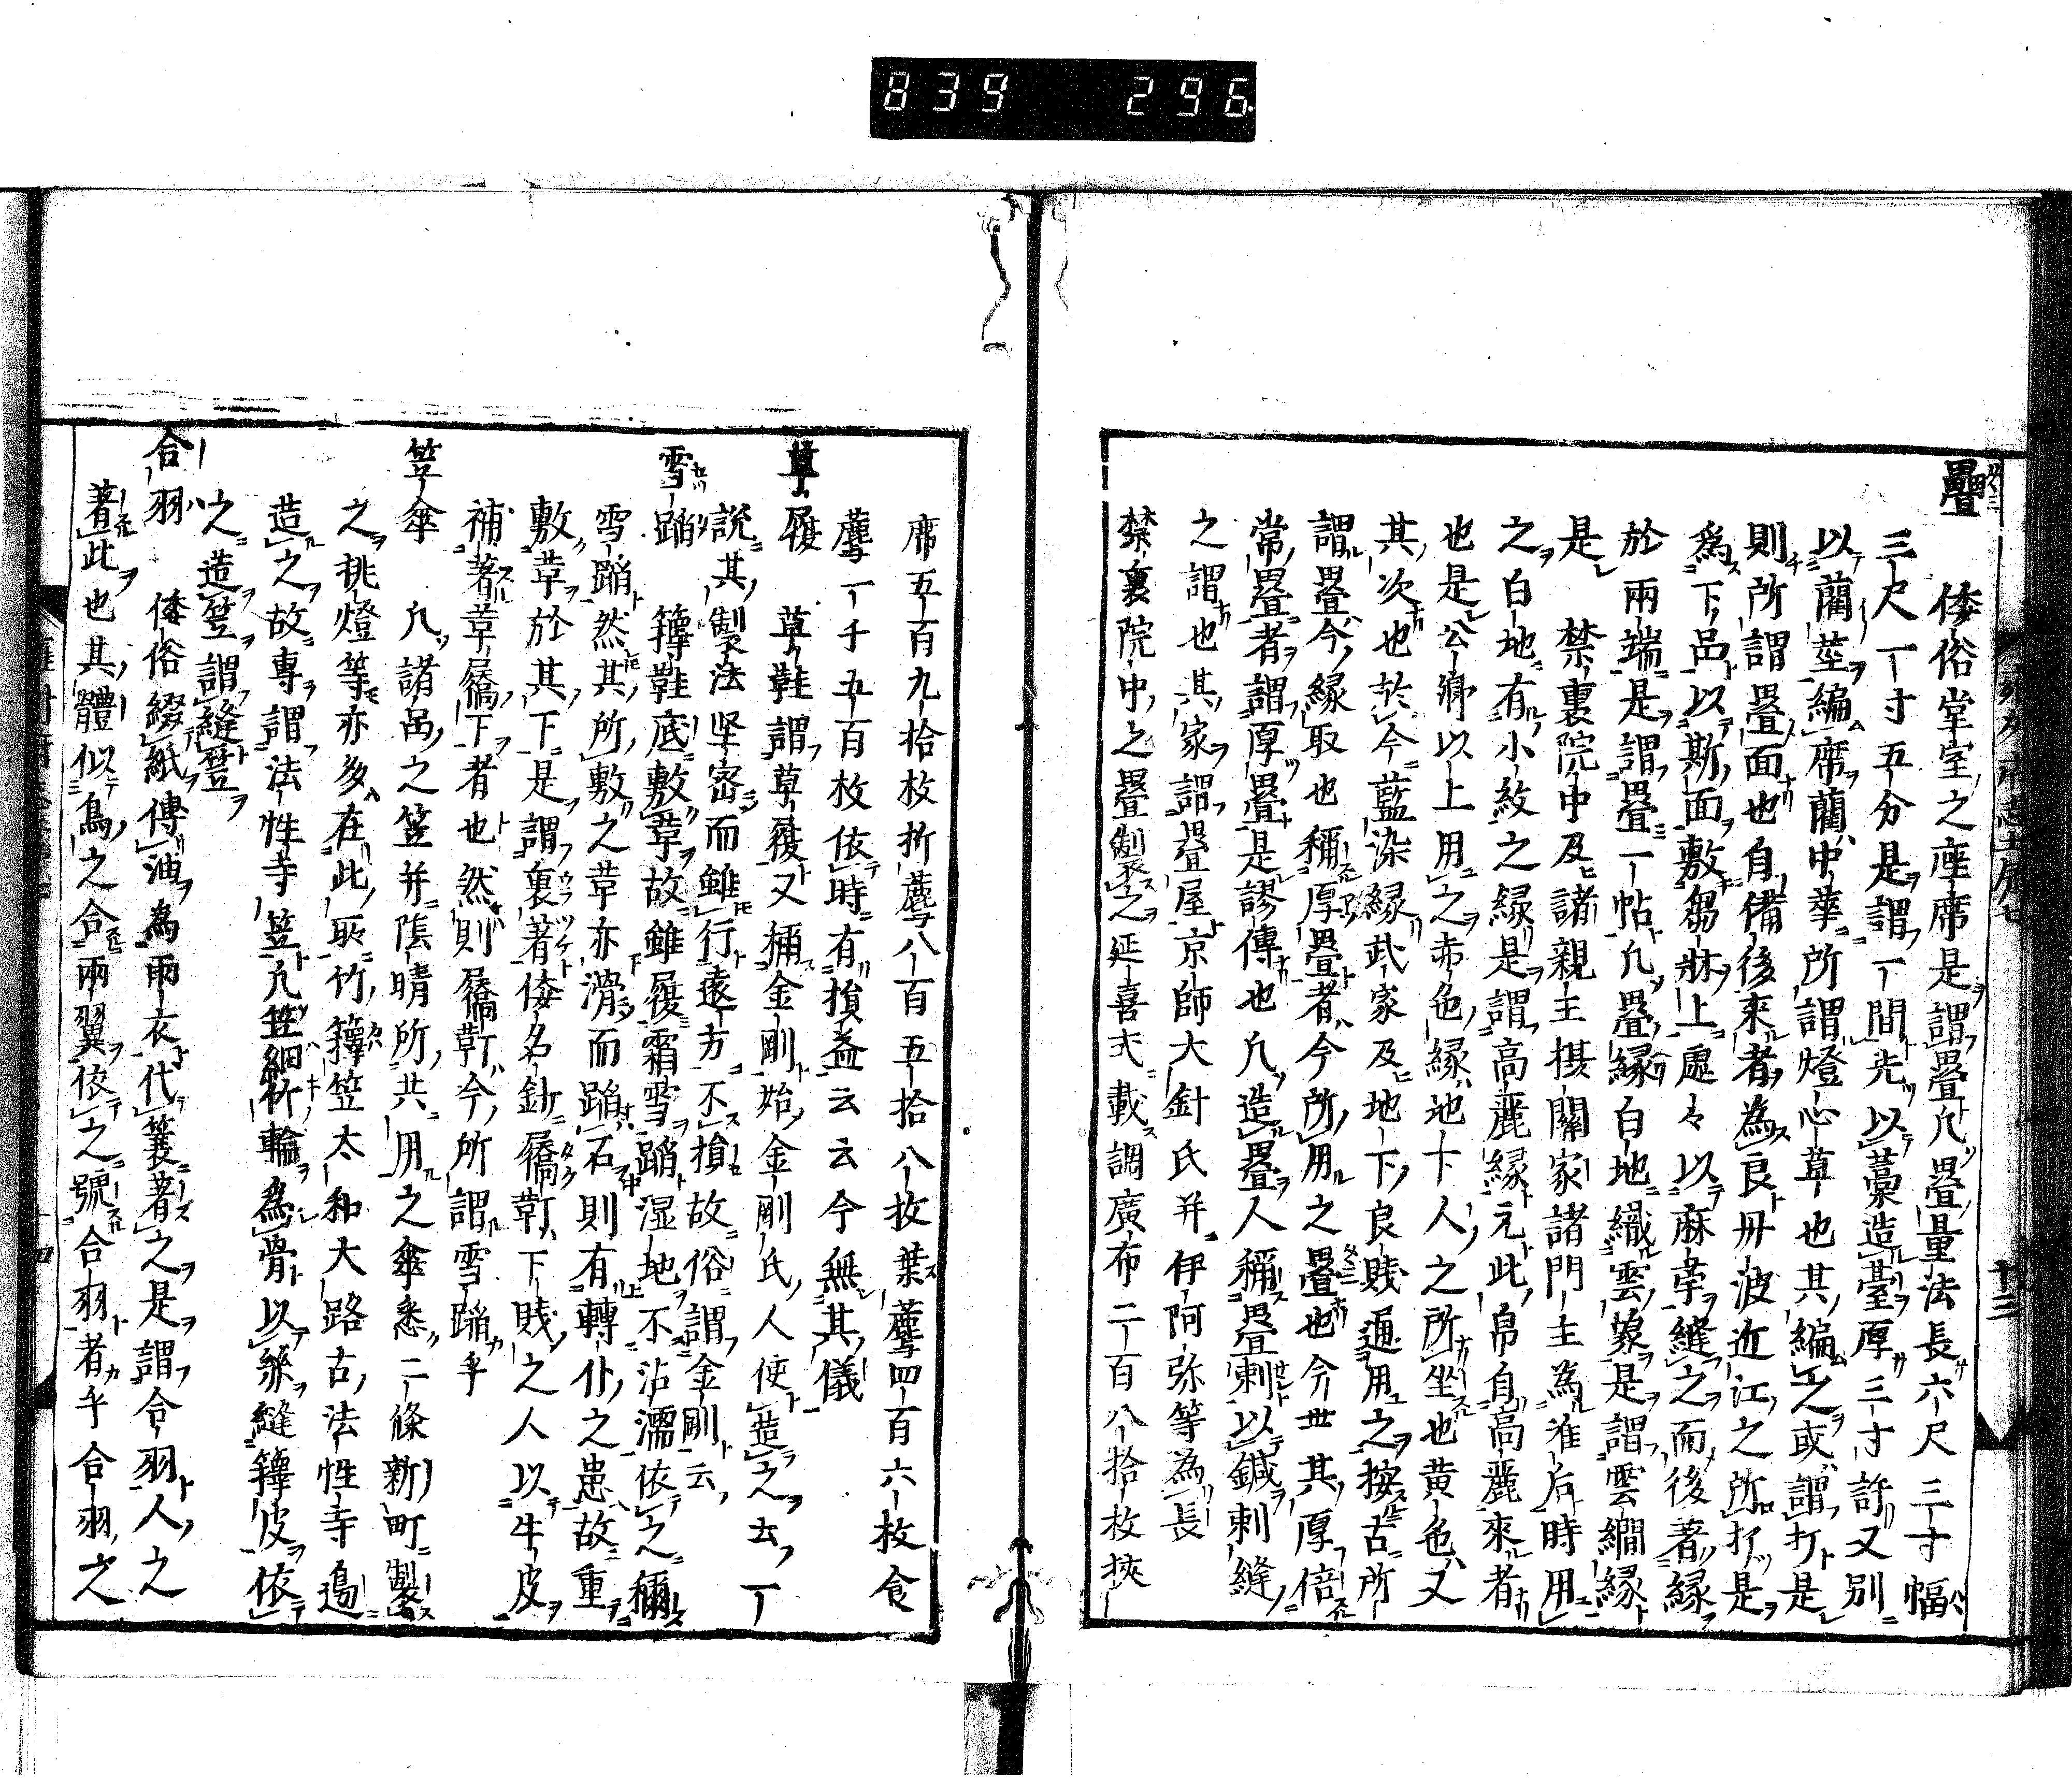 839 296
疊 倭俗堂室之座席是謂疊凢疊量法長六尺三寸幅
三尺一寸五分是謂一間先以藁造臺厚三寸許又别
以藺莖編席藺中華所謂燈心草也其編之或謂打是
則所謂疊面也自備後來者為良丹波近江之所打是
爲下品以斯面敷芻牀上處々以麻䋲縫之而後著縁
於兩端是謂疊一帖凢疊縁白地織雲象是謂雲繝縁
是 禁裏院中及諸親王摂關家諸門主為准后時用
之白地有小紋之縁是謂高麗縁元此帛自高麗來者
也是公卿以上用之赤色縁地下人之所坐也黄色又
其次也於今藍染縁武家及地下良賤通用之按古所
謂疊今縁取也稱厚疊者今所用之疊也今世其厚倍
常疊者謂厚疊是謬傳也凢造疊人稱疊刺以鍼刺縫
之謂也其家謂疊屋京師大針氏并伊阿弥等為長
禁裏院中之疊製之延喜式載調廣布二百八拾枚挾
席五百九拾枚折薦八百五拾八枚葉薦四百六枚食
薦一千五百枚依時有損益云云今無其儀
草履 草鞋謂草履又稱金剛始金剛氏人使造之云一
說其製法坚密而雖行遠方不損故俗謂金剛云
雪蹈 籜鞋底敷草故雖履霜雪蹈湿地不沾濡依之稱
雪蹈然其所敷之草亦滑而蹈石則有轉仆之患故重
敷草於其下是謂裏著倭名針屩䩕下賤之人以牛皮
補著草屩下者也然則屩䩕今所謂雪蹈乎
笠傘 凢諸品之笠并陰晴所共用之傘悉二條新町製
之挑燈等亦多在此取竹籜笠太和大路古法性寺邉
造之故專謂法性寺笠凢笠細竹輪為骨以絲縫籜皮依
之造笠謂縫笠
合羽 倭俗綴紙傳油為雨衣代蓑著之是謂合羽人之
著此也其體似鳥之合兩翼依之號合羽者乎合羽之